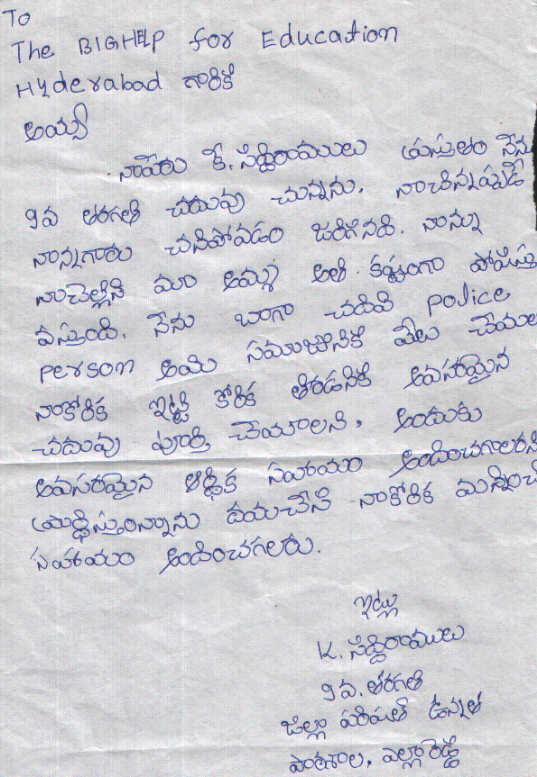 To
The BIGHELP for Education
Hyderabad గారికి
అయ్యా
నాపేరు కే. సిద్దిరాములు ప్రస్తుతం నేను
9వ తరగతి చదువు చున్నాను. నాచిన్నప్పుడే
నాన్నగారు చనిపోవడం జరిగినది. నాన్ను
నాచెల్లిని మా అమ్మ అతి కష్టంగా పోషిస్తు
వస్తుంది. నేను బాగా చదివి police
person అయి సమాజానికి మేలు చేయాల
నాకోరిక ఇట్టి కోరిక తీరడనికి అవసరమైన
చదువు పూర్తి చేయాలని, అందుకు
అవసరమైన ఆర్థిక సహాయం అందించగలరని
ప్రార్థిస్తున్నాను దయచేసి నాకోరిక మన్నించి
సహాయం అందించగలరు.
ఇట్లు
K. సిద్దిరాములు
9వ. తరగతి
జిల్లా పరిషతి ఉన్నత
పాఠశాల, ఎల్లారెడ్డి